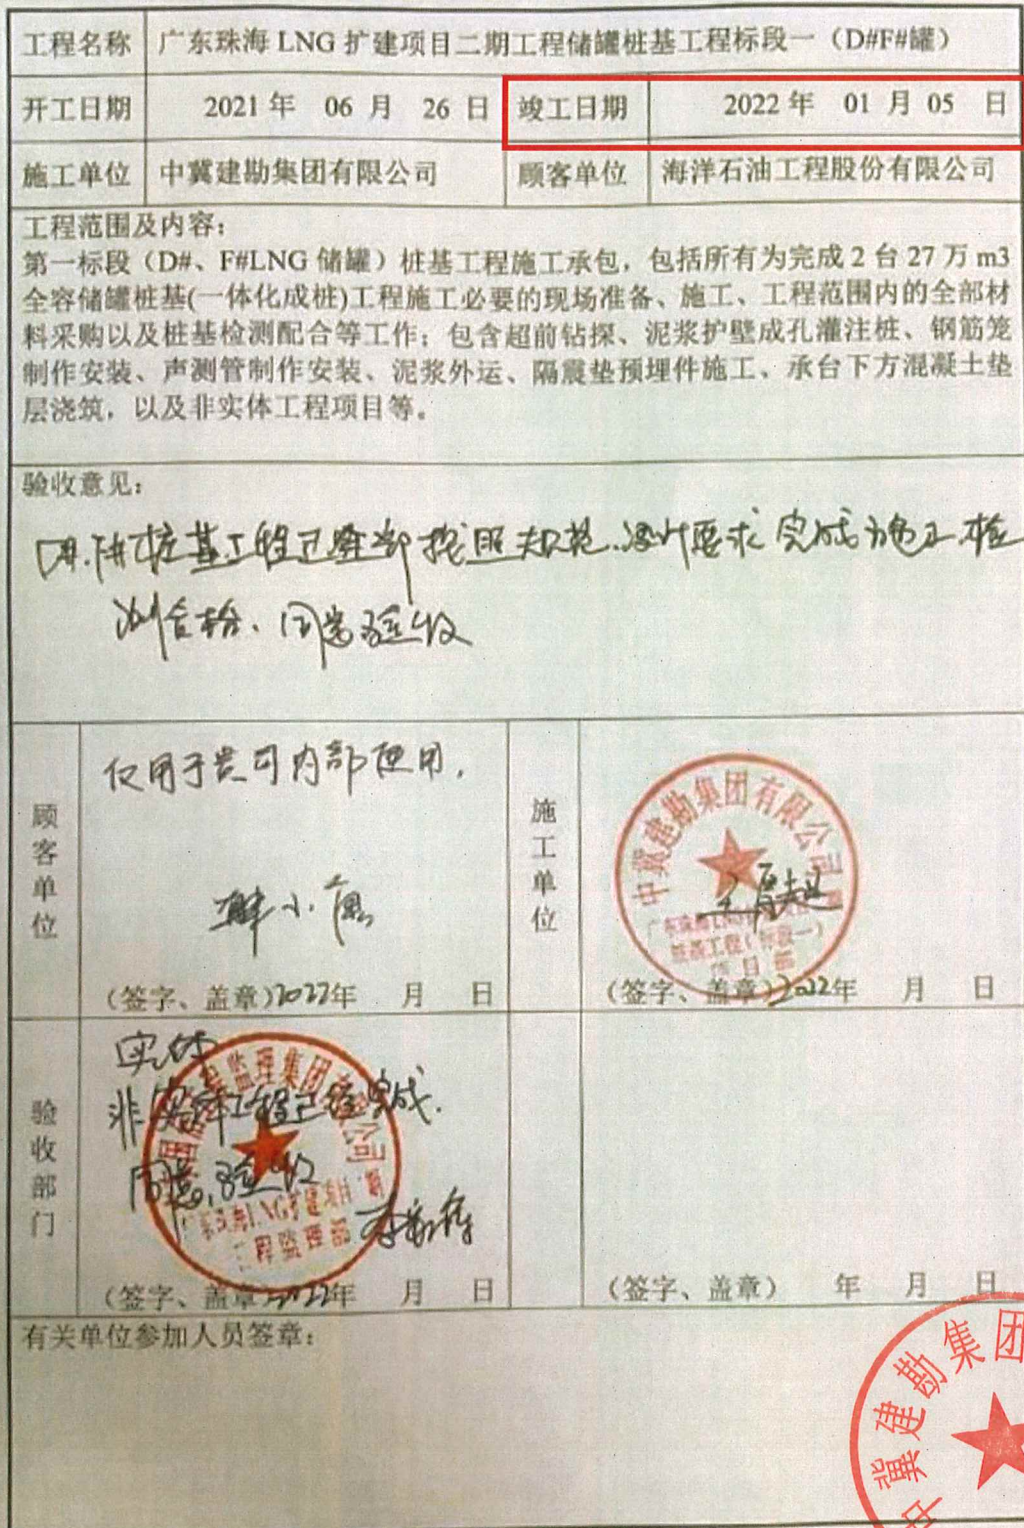 工程名称 广东珠海 LNG 扩建项目二期工程储罐桩基工程标段一（D#F#罐）
开工日期 2021 年 06 月 26 日 竣工日期 2022 年 01 月 05 日
施工单位 中冀建勘集团有限公司 顾客单位 海洋石油工程股份有限公司
工程范围及内容：
第一标段（D#、F#LNG 储罐）桩基工程施工承包，包括所有为完成 2 台 27 万 m3
全容储罐桩基(一体化成桩)工程施工必要的现场准备、施工、工程范围内的全部材
料采购以及桩基检测配合等工作；包含超前钻探、泥浆护壁成孔灌注桩、钢筋笼
制作安装、声测管制作安装、泥浆外运、隔震垫预埋件施工、承台下方混凝土垫
层浇筑，以及非实体工程项目等。
验收意见：
D#、F#桩基工程已经按照规范、设计要求完成施工、检
测合格、同意验收
顾客单位
仅用于贵司内部使用，
（签字、盖章）2022年 月 日
施工单位
中冀建勘集团有限公司
广东珠海LNG
桩基工程（标段一）
项目部
（签字、盖章）2022年 月 日
验收部门
实体
非实体工程已经完成.
同意验收
监理集团有限公司
广东珠海LNG扩建项目二期
工程监理部
（签字、盖章）2022年 月 日
（签字、盖章） 年 月 日
有关单位参加人员签章：
中冀建勘集团